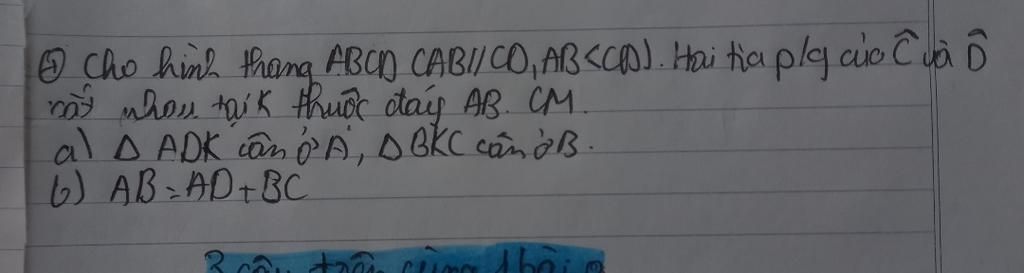 ④ Cho hình thang ABCD (AB//CD, AB<CD). Hai tia p/g của Ĉ và D̂
nhau tại K thuộc đáy AB. CM.
a) Δ ADK cân ở A, Δ BKC cân ở B.
b) AB = AD + BC
3 câu trên cùng 1 bài